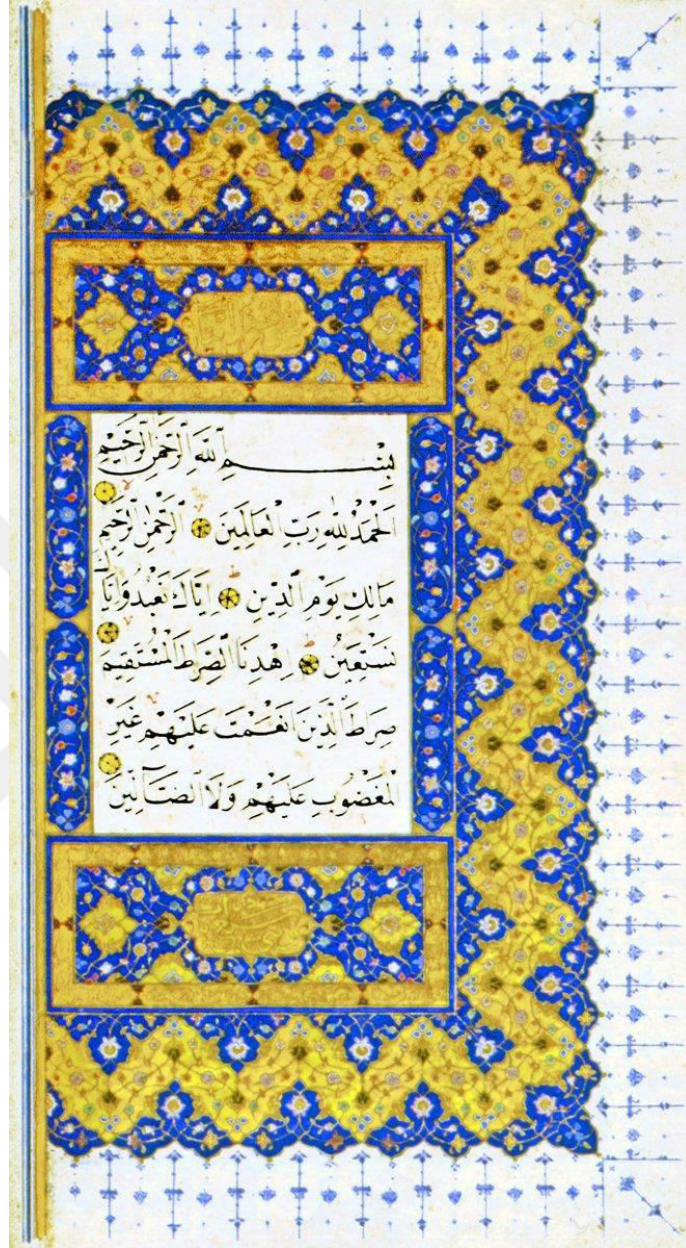 بِسْمِ اللّٰهِ الرَّحْمٰنِ الرَّحِيمِ
اَلْحَمْدُ لِلّٰهِ رَبِّ الْعَالَمِينَ الرَّحْمٰنِ الرَّحِيمِ
مَالِكِ يَوْمِ الدِّينِ اِيَّاكَ نَعْبُدُ وَاِيَّاكَ
نَسْتَعِينُ اِهْدِنَا الصِّرَاطَ الْمُسْتَقِيمَ
صِرَاطَ الَّذِينَ اَنْعَمْتَ عَلَيْهِمْ غَيْرِ
الْمَغْضُوبِ عَلَيْهِمْ وَلَا الضَّٓالِّينَ